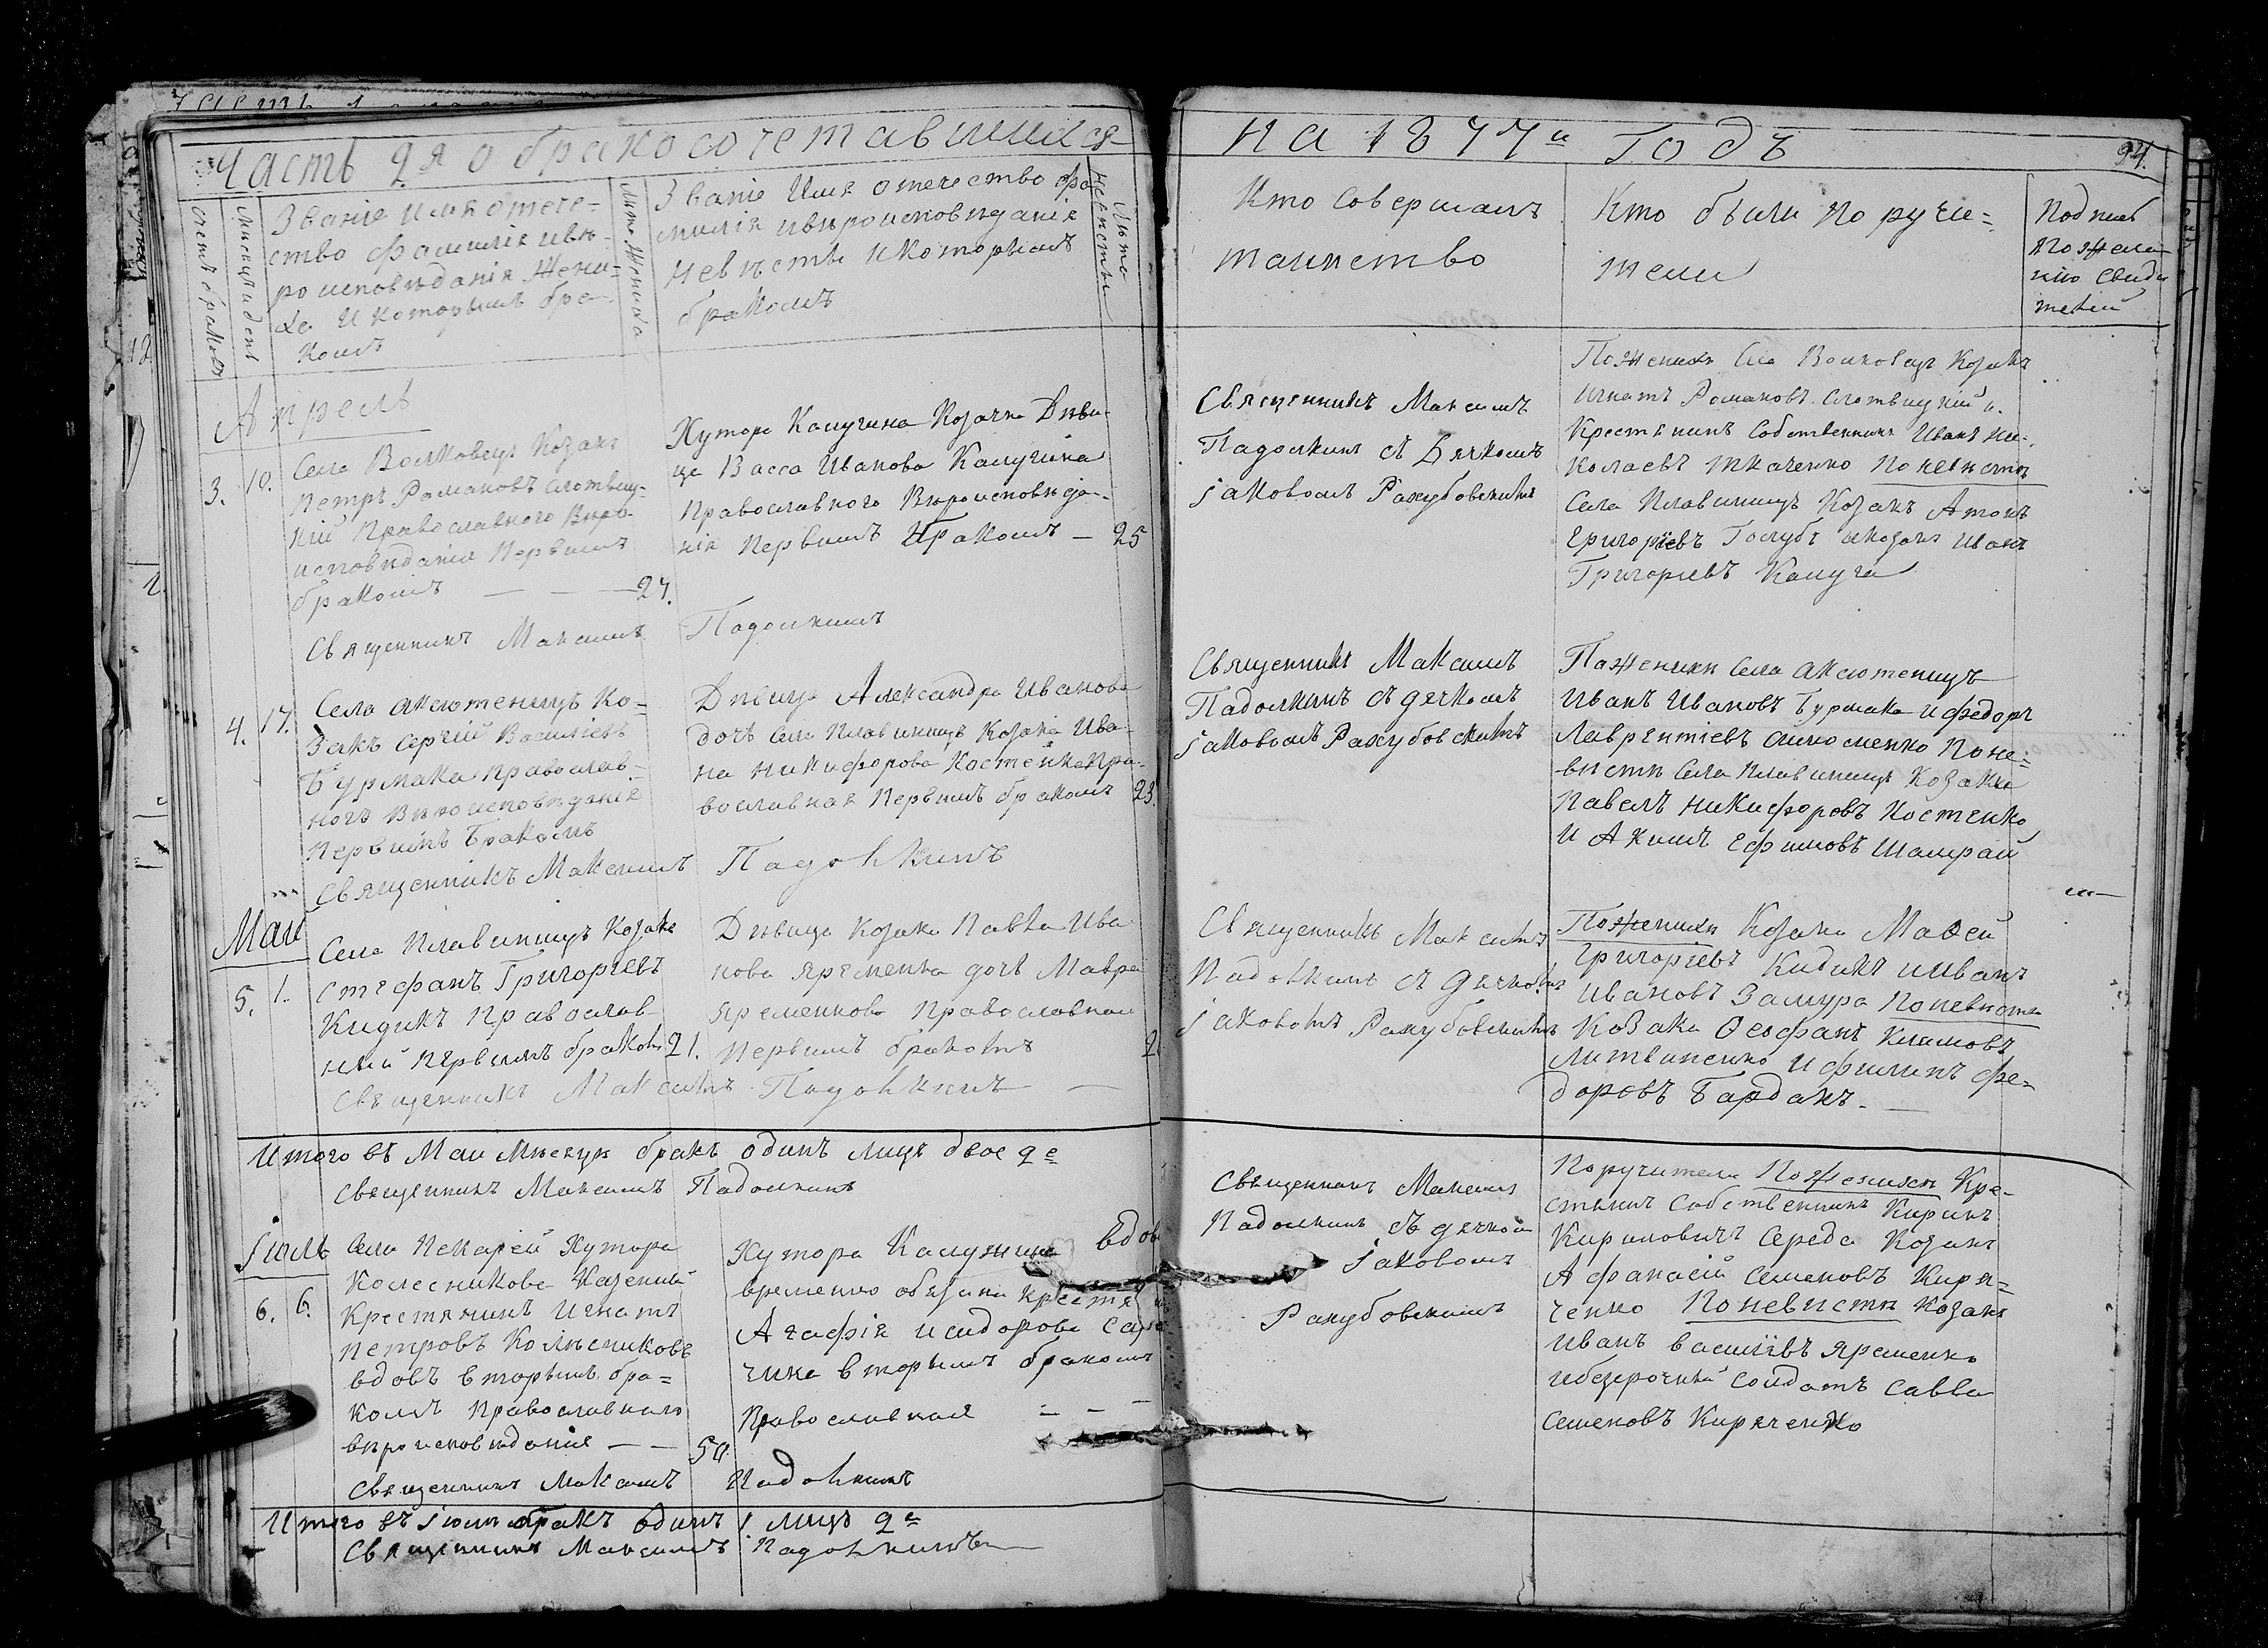 Часть 2я о бракосочетавшихся
на 1877й годъ
94.
счетъ браковъ
Мѣсяцъ и день
Званіе Имя отече-
ство фамилія и вѣ-
роисповѣданія Жени-
ха И которымъ бра-
комъ
Лѣта Жениха
Званіе Имя отечество фа-
милія и вѣроисповѣданія
невѣсты и которымъ
бракомъ
Лѣта невѣсты
Кто совершалъ
таинство
Кто были поручи-
тели
Подпись
по жела-
нію свидѣ
телей
Апрель
3. 10.
Села Волковецъ Козакъ
Петръ Романовъ Слотвиц-
кій Православного Вѣро-
исповѣданія Первымъ
бракомъ — — — 24.
Священникъ Максимъ
Хутора Калугина Козачка Дѣви-
ца Васса Иванова Калугина
Православного Вѣроисповѣда-
нія Первымъ Бракомъ — 25
Падолкинъ
Священникъ Максимъ
Падолкинъ съ Дячкомъ
Іаковомъ Рахубовскимъ
По женихѣ Села Волковецъ Козакъ
Игнатъ Романовъ Слотвицкій и
Крестянинъ Собственникъ Иванъ Ни-
колаевъ Ткаченко По невѣстѣ
Села Плавинищъ Козакъ Антонъ
Григоріевъ Голубъ и Козакъ Иванъ
Григоріевъ Калуга
4. 17.
Села Аксютенцъ Ко-
закъ Сергій Василіевъ
Бурмака православ-
ного Вѣроисповѣданія
Первымъ Бракомъ
Священникъ Максимъ
Дѣвица Александра Иванова
дочъ Села Плавинищъ Козака Ива-
на Никифорова Костенка Пра-
вославная Первымъ бракомъ 23.
Падолкинъ
Священникъ Максимъ
Падолкинъ съ дячкомъ
Іаковомъ Рахубовскимъ
По женихѣ Села Аксютенцъ
Иванъ Ивановъ Бурмака и федоръ
Лаврентіевъ По не-
вѣстѣ Села Плавинищъ Козаки
Павелъ Никифоровъ Костенко
И Акимъ Ефимовъ Шамрай
Маи
5. 1.
Села Плавинищъ Козакъ
Стефанъ Григоріевъ
Кидикъ Православ-
ный первымъ бракомъ 21.
Священникъ Максимъ
Дѣвица Козака Павла Ива
нова Яременка дочъ Мавра
Яременкова Православная
Первымъ бракомъ 2
Падолкинъ —
Священникъ Максимъ
Падолкинъ съ Дячкомъ
Іаковомъ Рахубовскимъ
По женихѣ Козаки Моѳсей
Григоріевъ Кидикъ и Иванъ
Ивановъ Замура По невѣстѣ
Козаки Ѳеофанъ Климовъ
Литвиненко и филипъ фе-
доровъ Бардакъ. —
Итого въ Маи Мѣсяцѣ бракъ одинъ лицъ двое 2е
Священникъ Максимъ Падолкинъ
Іюль
6. 6.
Села Пекарей Хутора
Колесникова Казений
Крестянинъ Игнатъ
Петровъ Колѣсниковъ
вдовъ вторымъ бра-
комъ Православнаго
вѣроисповѣданія — — 50.
Священникъ Максимъ
Хутора Калужина вдова
временно обязана крестян
Агафія Исидорова
вторымъ бракомъ
Православная — — —
Падолкинъ
Священникъ Максимъ
Падолкинъ съ дячкомъ
Іаковомъ
Рахубовскимъ
Поручители По женихѣ Кре-
стянинъ Собственникъ Кирикъ
Кириловичъ Середа Козакъ
Афанасій Семеновъ Киря-
ченко По невистѣ Козакъ
Иванъ Василіевъ Яременко
и безсрочний Солдатъ Савва
Семеновъ Киряченко
Итого въ Іюли бракъ Одинъ 1. лицъ 2е
Священникъ Максимъ Падолкинъ